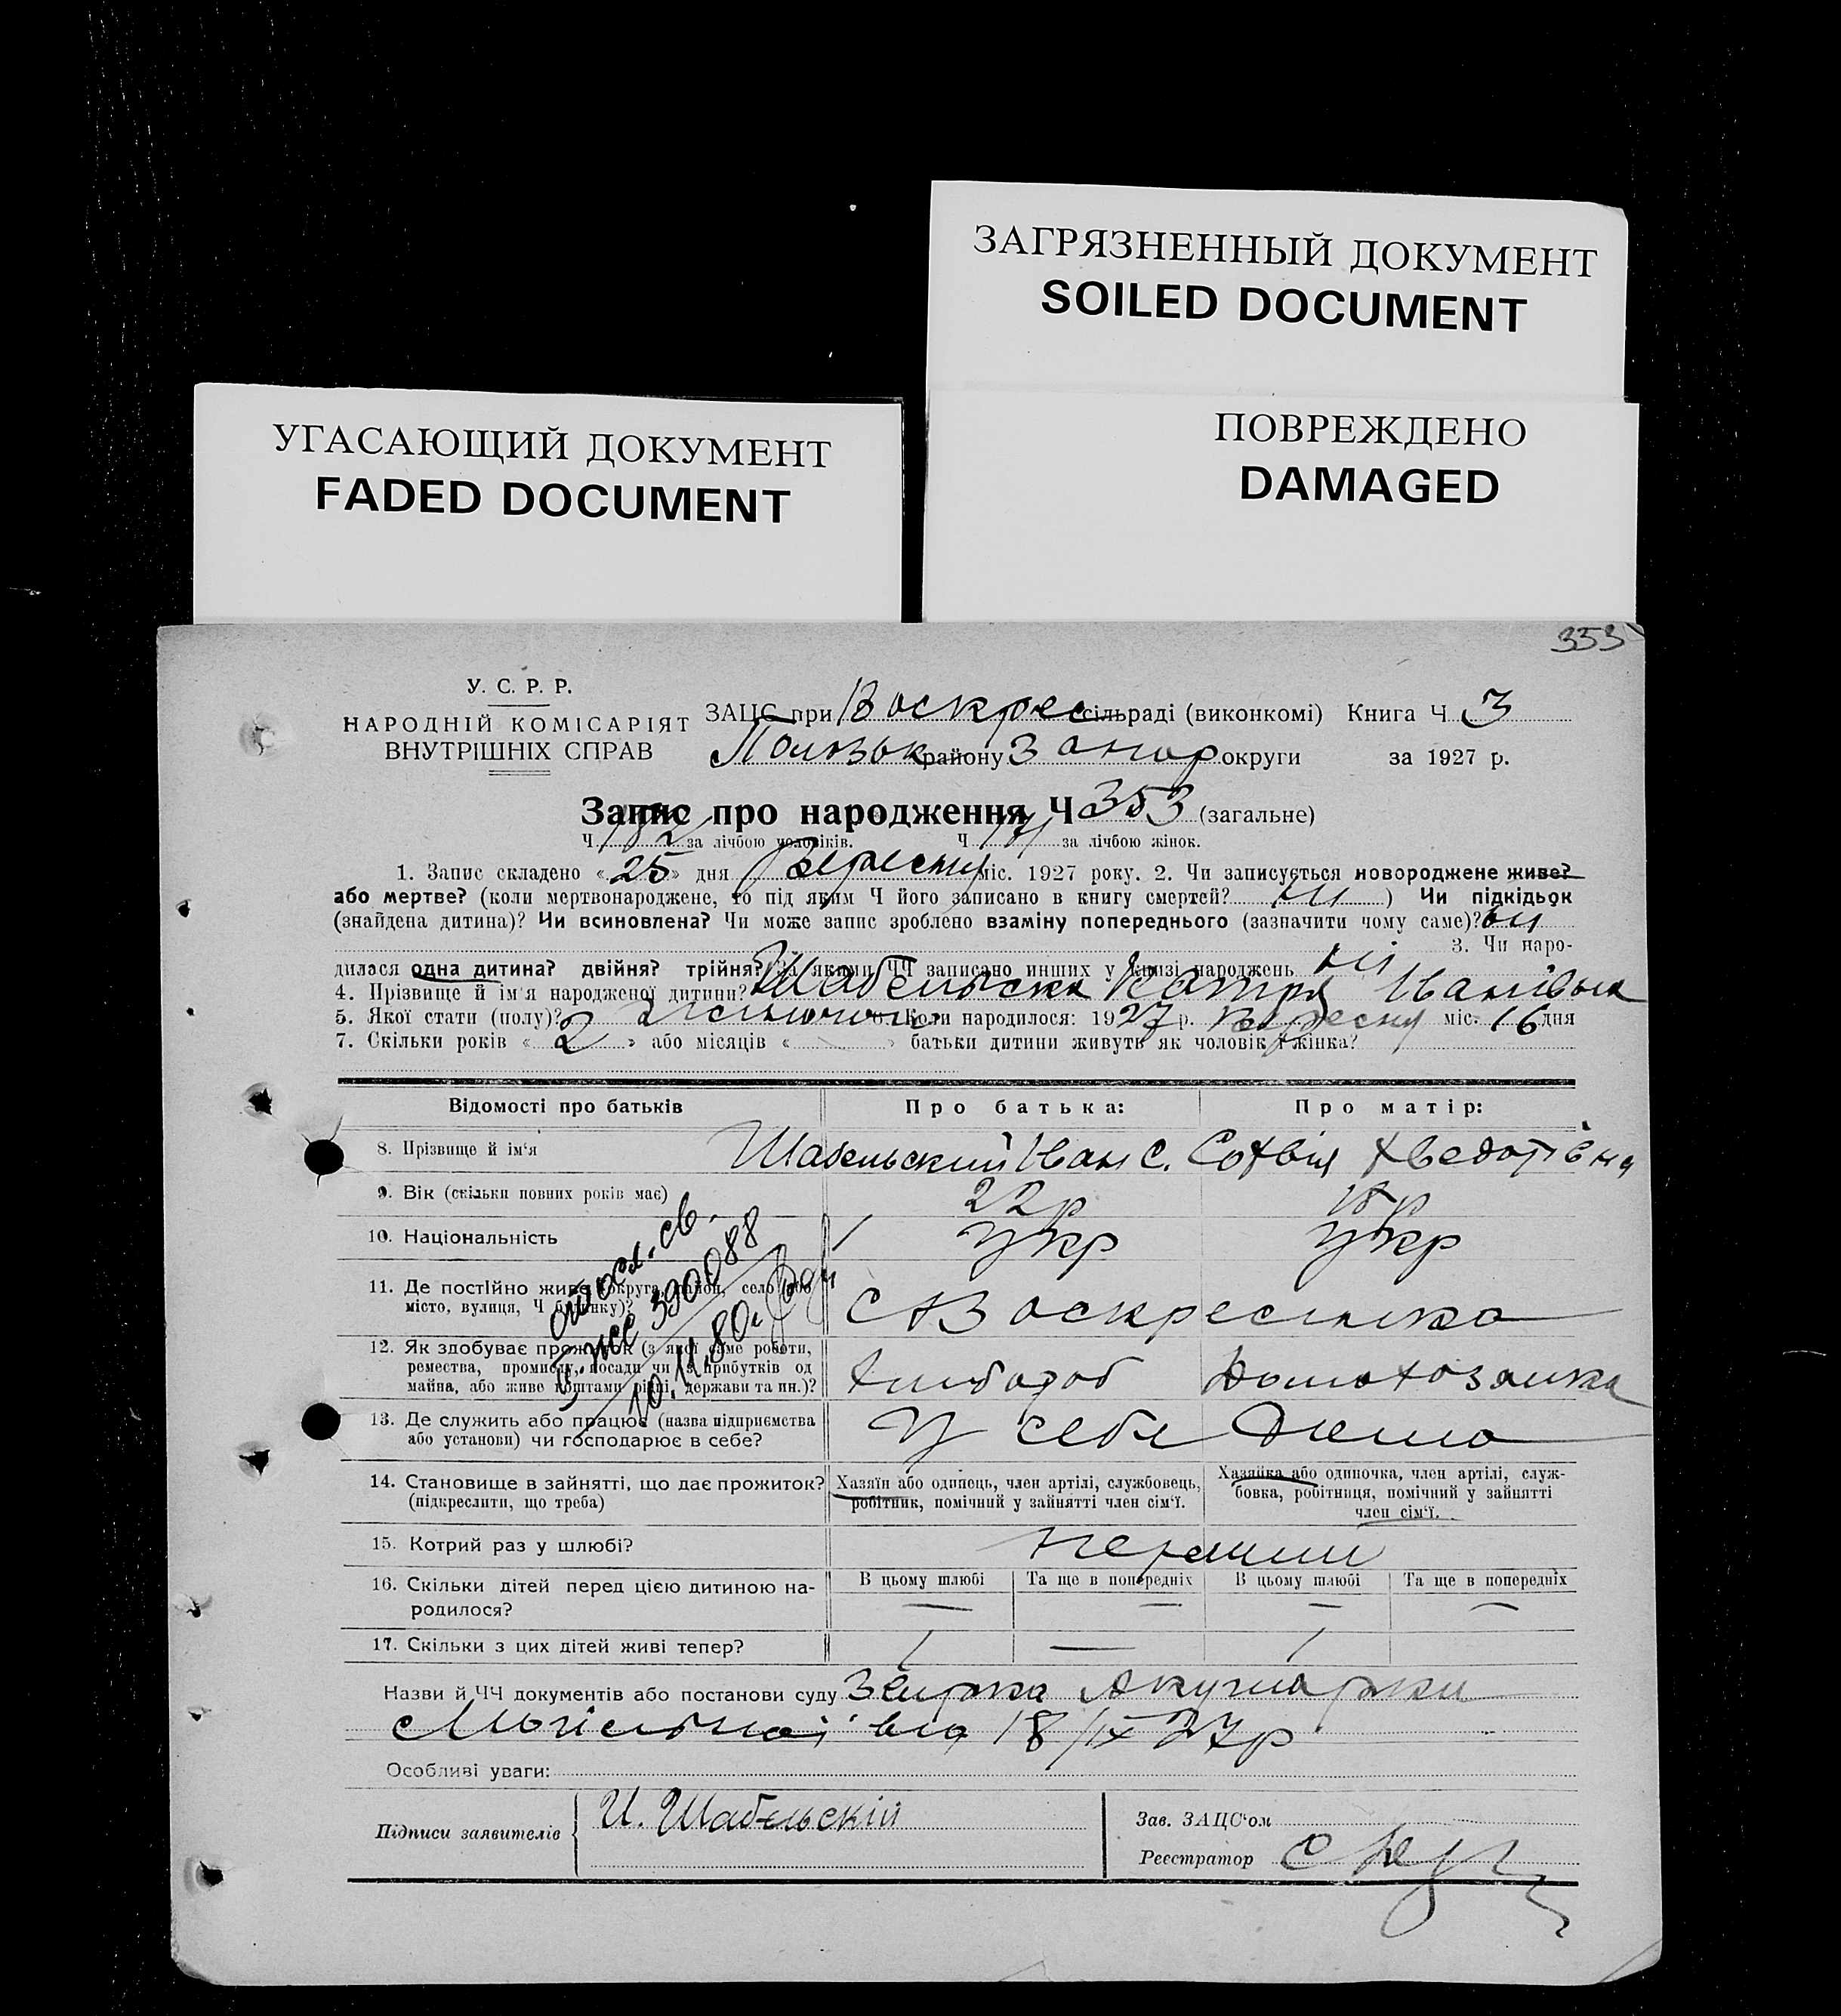 ЗАГРЯЗНЕННЫЙ ДОКУМЕНТ
SOILED DOCUMENT
УГАСАЮЩИЙ ДОКУМЕНТ
FADED DOCUMENT
ПОВРЕЖДЕНО
DAMAGED
353
У. С. Р. Р.
НАРОДНІЙ КОМІСАРІЯТ
ВНУТРІШНІХ СПРАВ
ЗАЦС при Воскрес сільраді (виконкомі) Книга Ч 3
району Запор округи за 1927 р.
Запис про народження Ч 353 (загальне)
Ч 182 за лічбою чоловіків. Ч 171 за лічбою жінок.
1. Запис складено «25» дня Вересня міс. 1927 року. 2. Чи записується новороджене живе?
або мертве? (коли мертвонароджене, то під яким Ч його записано в книгу смертей? ні ) Чи підкідьок
(знайдена дитина)? Чи всиновлена? Чи може запис зроблено взаміну попереднього (зазначити чому саме)? ні
3. Чи наро-
дилася одна дитина? двійня? трійня? За якими ЧЧ записано инших у книзі народжень ні
4. Прізвище й ім'я народженої дитини? Шабельська Катря Іванівна
5. Якої стати (полу)? Жіночої 6. Коли народилося: 1927 р. Вересня міс. 16 дня
7. Скільки років « 2 » або місяців « » батьки дитини живуть як чоловік і жінка?
Відомості про батьків Про батька: Про матір:
8. Прізвище й ім'я Шабельский Іван С. Софвія Хведотівна
9. Вік (скільки повних років має) 22 р 18 р
10. Національність укр укр
11. Де постійно живе (округа, район, село або
місто, вулиця, Ч будинку)? С Воскресенка
12. Як здобуває прожиток (з якої саме роботи,
ремества, промислу, посади чи з прибутків од
майна, або живе коштами рідні, держави та ин.)? Хлибороб Домохозяика
13. Де служить або працює (назва підприємства
або установи) чи господарює в себе? У себе дома
14. Становище в зайнятті, що дає прожиток?
(підкреслити, що треба)
Хазяїн або одинець, член артілі, службовець,
робітник, помічний у зайнятті член сім'ї.
Хазяйка або одиночка, член артілі, служ-
бовка, робітниця, помічний у зайнятті
член сім'ї.
15. Котрий раз у шлюбі? перший
16. Скільки дітей перед цією дитиною на-
родилося?
В цьому шлюбі Та ще в попередніх В цьому шлюбі Та ще в попередніх
— — — —
17. Скільки з цих дітей живі тепер? / — /
св.
390088
10.11.80г
Назви й ЧЧ документів або постанови суду Акушерки
від 18/IX 27р
Особливі уваги:
Підписи заявителів И. Шабельскій
Зав. ЗАЦС'ом
Реєстратор